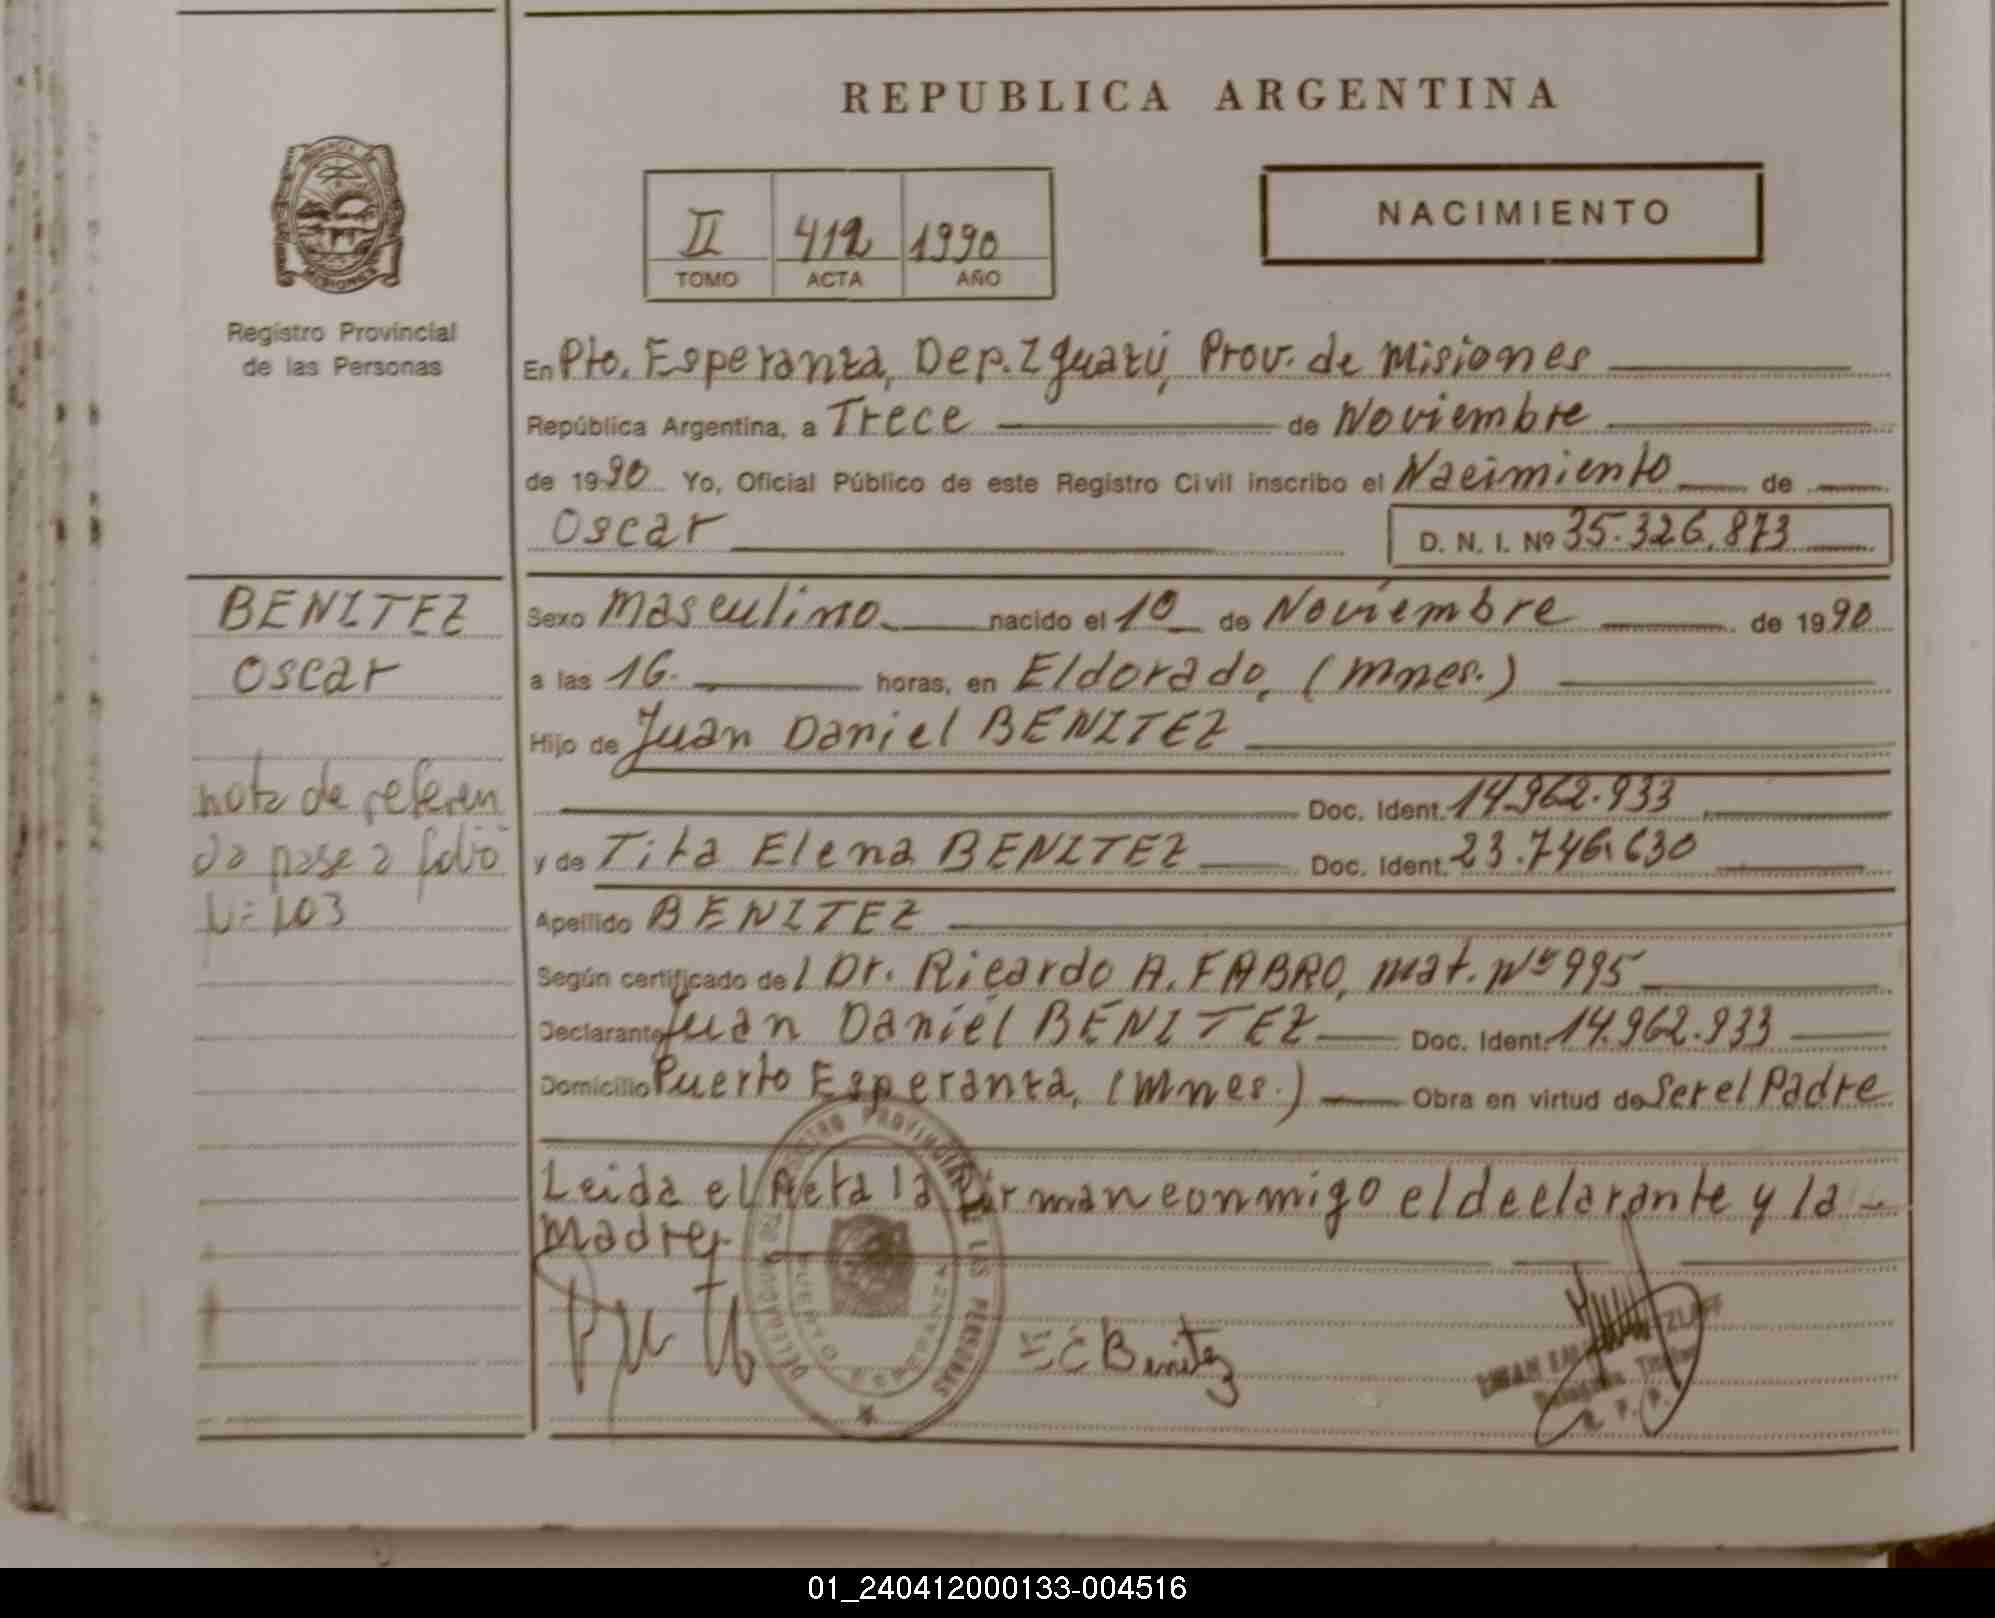 REPUBLICA ARGENTINA
NACIMIENTO
II 412 1990
TOMO ACTA AÑO
Registro Provincial
de las Personas
En Pto. Esperanza, Dep. Iguazú, Prov. de Misiones
República Argentina, a Trece de Noviembre
de 1990 Yo, Oficial Público de este Registro Civil inscribo el Nacimiento de
Oscar D. N. I. Nº 35.326.873
BENITEZ
Oscar
nota de referen
da pase a folio
Nº 103
Sexo Masculino nacido el 10 de Noviembre de 1990
a las 16. horas, en Eldorado, (Mnes.)
Hijo de Juan Daniel BENITEZ
Doc. Ident. 14.962.933
y de Tita Elena BENITEZ Doc. Ident. 23.746.630
Apellido BENITEZ
Según certificado del Dr. Ricardo A. FABRO, Mat. Nº 995
Declarante Juan Daniel BENITEZ Doc. Ident. 14.962.933
Domicilio Puerto Esperanza, (Mnes.) Obra en virtud de Ser el Padre
Leida el Acta la firman conmigo el declarante y la
Madre.
REGISTRO PROVINCIAL DE LAS PERSONAS
PUERTO ESPERANZA
Benitez
Titular
R. P. P.
01_240412000133-004516